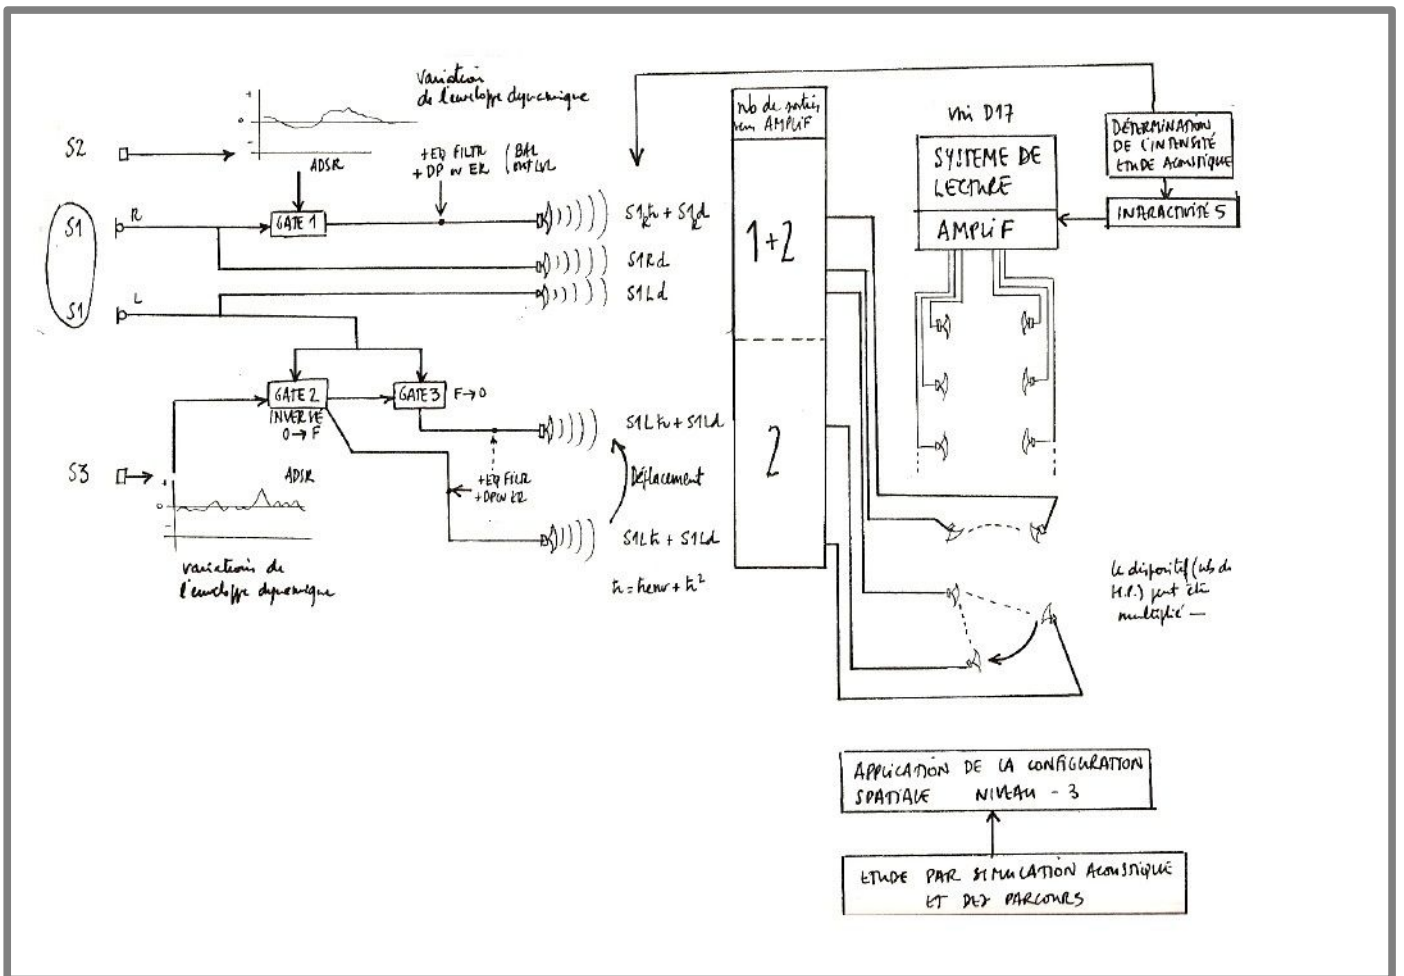 variation
de l'enveloppe dynamique
+
0
-
S2
ADSR
+EQ FILTR (BAL
+ DP ou ER OUT LVL
S1
R
GATE 1
S1Rh + S1Rd
S1Rd
S1
L
S1Ld
GATE 2
INVERSÉ
0→F
GATE 3
F→0
S1Lh + S1Ld
S3
+
0
-
ADSR
+EQ FILTR
+DP ou ER
Déplacement
S1Lh + S1Ld
variations de
l'enveloppe dynamique
h = henv + h²
nb de sorties
vers AMPLIF
1+2
2
voir D17
SYSTEME DE
LECTURE
AMPLIF
DÉTERMINATION
DE L'INTENSITÉ
ETUDE ACOUSTIQUE
INTERACTIVITÉ 5
le dispositif (nb de
H.P.) peut être
multiplié —
APPLICATION DE LA CONFIGURATION
SPATIALE NIVEAU - 3
ETUDE PAR SIMULATION ACOUSTIQUE
ET DES PARCOURS